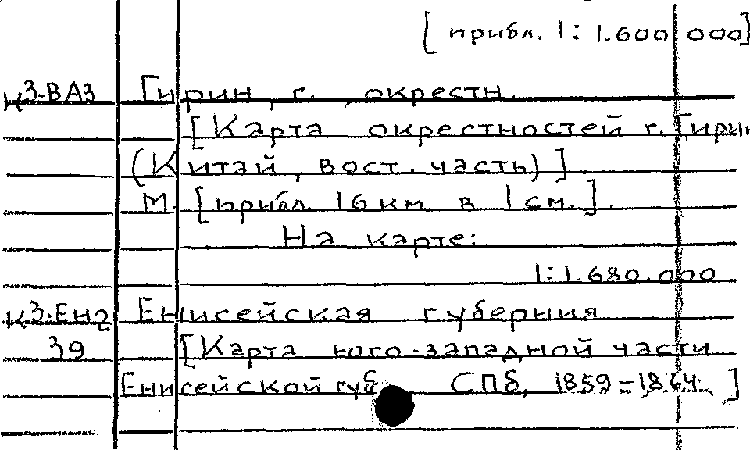 [прибл. 1: 1.600 000]
К3-ВА3 Гирин, г. окрестн.
[Карта окрестностей г. Гирин
(Китай, вост. часть)]
М. [прибл. 16 км в 1 см.].
На карте:
1:1.680.000
К3-ЕН2 Енисейская губерния
39 [Карта юго-западной части
Енисейской губ. СПб, 1859-1864.]